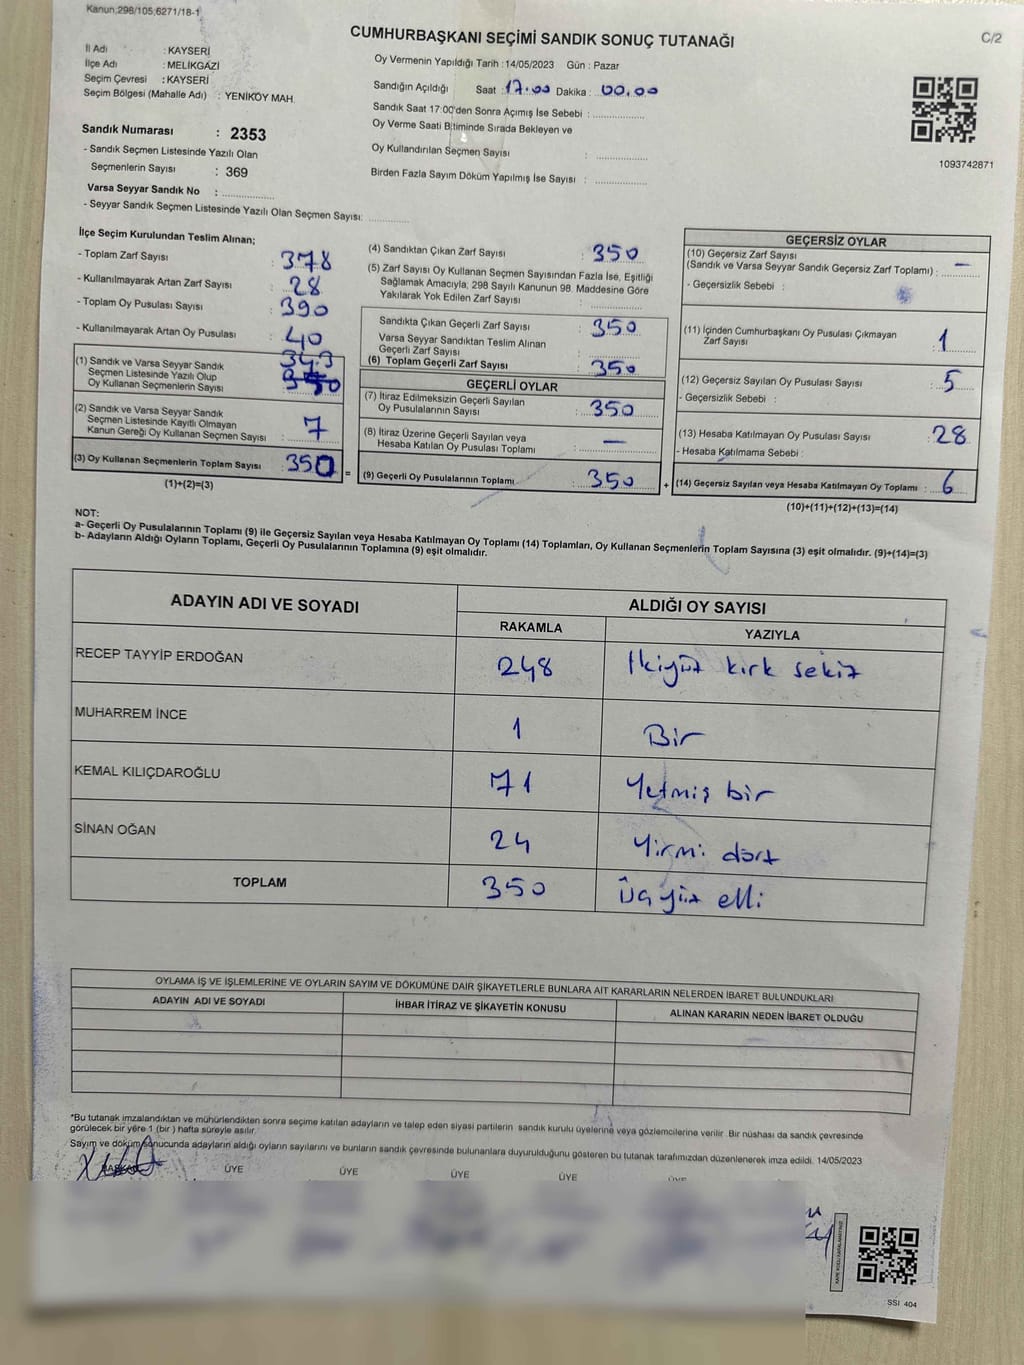 Kanun:298/105,6271/18-1
CUMHURBAŞKANI SEÇİMİ SANDIK SONUÇ TUTANAĞI
C/2
İl Adı : KAYSERİ
İlçe Adı : MELİKGAZİ
Seçim Çevresi : KAYSERİ
Seçim Bölgesi (Mahalle Adı) : YENİKÖY MAH.
Sandık Numarası : 2353
- Sandık Seçmen Listesinde Yazılı Olan
Seçmenlerin Sayısı : 369
Varsa Seyyar Sandık No : ..............
- Seyyar Sandık Seçmen Listesinde Yazılı Olan Seçmen Sayısı: ..........
Oy Vermenin Yapıldığı Tarih : 14/05/2023 Gün : Pazar
Sandığın Açıldığı Saat : 17.00 Dakika : 00.00
Sandık Saat 17:00'den Sonra Açımış İse Sebebi : ..............
Oy Verme Saati Bitiminde Sırada Bekleyen ve
Oy Kullandırılan Seçmen Sayısı : ..............
Birden Fazla Sayım Döküm Yapılmış İse Sayısı : ..............
1093742871
İlçe Seçim Kurulundan Teslim Alınan;
- Toplam Zarf Sayısı : 378
- Kullanılmayarak Artan Zarf Sayısı : 28
- Toplam Oy Pusulası Sayısı : 390
- Kullanılmayarak Artan Oy Pusulası : 40
(1) Sandık ve Varsa Seyyar Sandık 343
Seçmen Listesinde Yazılı Olup
Oy Kullanan Seçmenlerin Sayısı
(2) Sandık ve Varsa Seyyar Sandık
Seçmen Listesinde Kayıtlı Olmayan
Kanun Gereği Oy Kullanan Seçmen Sayısı : 7
(3) Oy Kullanan Seçmenlerin Toplam Sayısı : 350
(1)+(2)=(3)
=
(4) Sandıktan Çıkan Zarf Sayısı : 350
(5) Zarf Sayısı Oy Kullanan Seçmen Sayısından Fazla İse, Eşitliği
Sağlamak Amacıyla, 298 Sayılı Kanunun 98. Maddesine Göre
Yakılarak Yok Edilen Zarf Sayısı : ..............
Sandıkta Çıkan Geçerli Zarf Sayısı : 350
Varsa Seyyar Sandıktan Teslim Alınan
Geçerli Zarf Sayısı : ..............
(6) Toplam Geçerli Zarf Sayısı : 350
GEÇERLİ OYLAR
(7) İtiraz Edilmeksizin Geçerli Sayılan
Oy Pusulalarının Sayısı : 350
(8) İtiraz Üzerine Geçerli Sayılan veya
Hesaba Katılan Oy Pusulası Toplamı : —
(9) Geçerli Oy Pusulalarının Toplamı : 350
+
GEÇERSİZ OYLAR
(10) Geçersiz Zarf Sayısı
(Sandık ve Varsa Seyyar Sandık Geçersiz Zarf Toplamı) : —
- Geçersizlik Sebebi :
(11) İçinden Cumhurbaşkanı Oy Pusulası Çıkmayan
Zarf Sayısı : 1
(12) Geçersiz Sayılan Oy Pusulası Sayısı : 5
- Geçersizlik Sebebi :
(13) Hesaba Katılmayan Oy Pusulası Sayısı : 28
- Hesaba Katılmama Sebebi :
(14) Geçersiz Sayılan veya Hesaba Katılmayan Oy Toplamı : 6
(10)+(11)+(12)+(13)=(14)
NOT:
a- Geçerli Oy Pusulalarının Toplamı (9) ile Geçersiz Sayılan veya Hesaba Katılmayan Oy Toplamı (14) Toplamları, Oy Kullanan Seçmenlerin Toplam Sayısına (3) eşit olmalıdır. (9)+(14)=(3)
b- Adayların Aldığı Oyların Toplamı, Geçerli Oy Pusulalarının Toplamına (9) eşit olmalıdır.
ADAYIN ADI VE SOYADI ALDIĞI OY SAYISI
RAKAMLA YAZIYLA
RECEP TAYYİP ERDOĞAN 248 İkiyüz kırk sekiz
MUHARREM İNCE 1 Bir
KEMAL KILIÇDAROĞLU 71 Yetmiş bir
SİNAN OĞAN 24 Yirmi dört
TOPLAM 350 Üçyüz elli
OYLAMA İŞ VE İŞLEMLERİNE VE OYLARIN SAYIM VE DÖKÜMÜNE DAİR ŞİKAYETLERLE BUNLARA AİT KARARLARIN NELERDEN İBARET BULUNDUKLARI
ADAYIN ADI VE SOYADI İHBAR İTİRAZ VE ŞİKAYETİN KONUSU ALINAN KARARIN NEDEN İBARET OLDUĞU
*Bu tutanak imzalandıktan ve mühürlendikten sonra seçime katılan adayların ve talep eden siyasi partilerin sandık kurulu üyelerine veya gözlemcilerine verilir. Bir nüshası da sandık çevresinde
görülecek bir yere 1 (bir ) hafta süreyle asılır.
Sayım ve döküm sonucunda adayların aldığı oyların sayılarını ve bunların sandık çevresinde bulunanlara duyurulduğunu gösteren bu tutanak tarafımızdan düzenlenerek imza edildi. 14/05/2023
BAŞKAN ÜYE ÜYE ÜYE ÜYE ÜYE
SSI 404